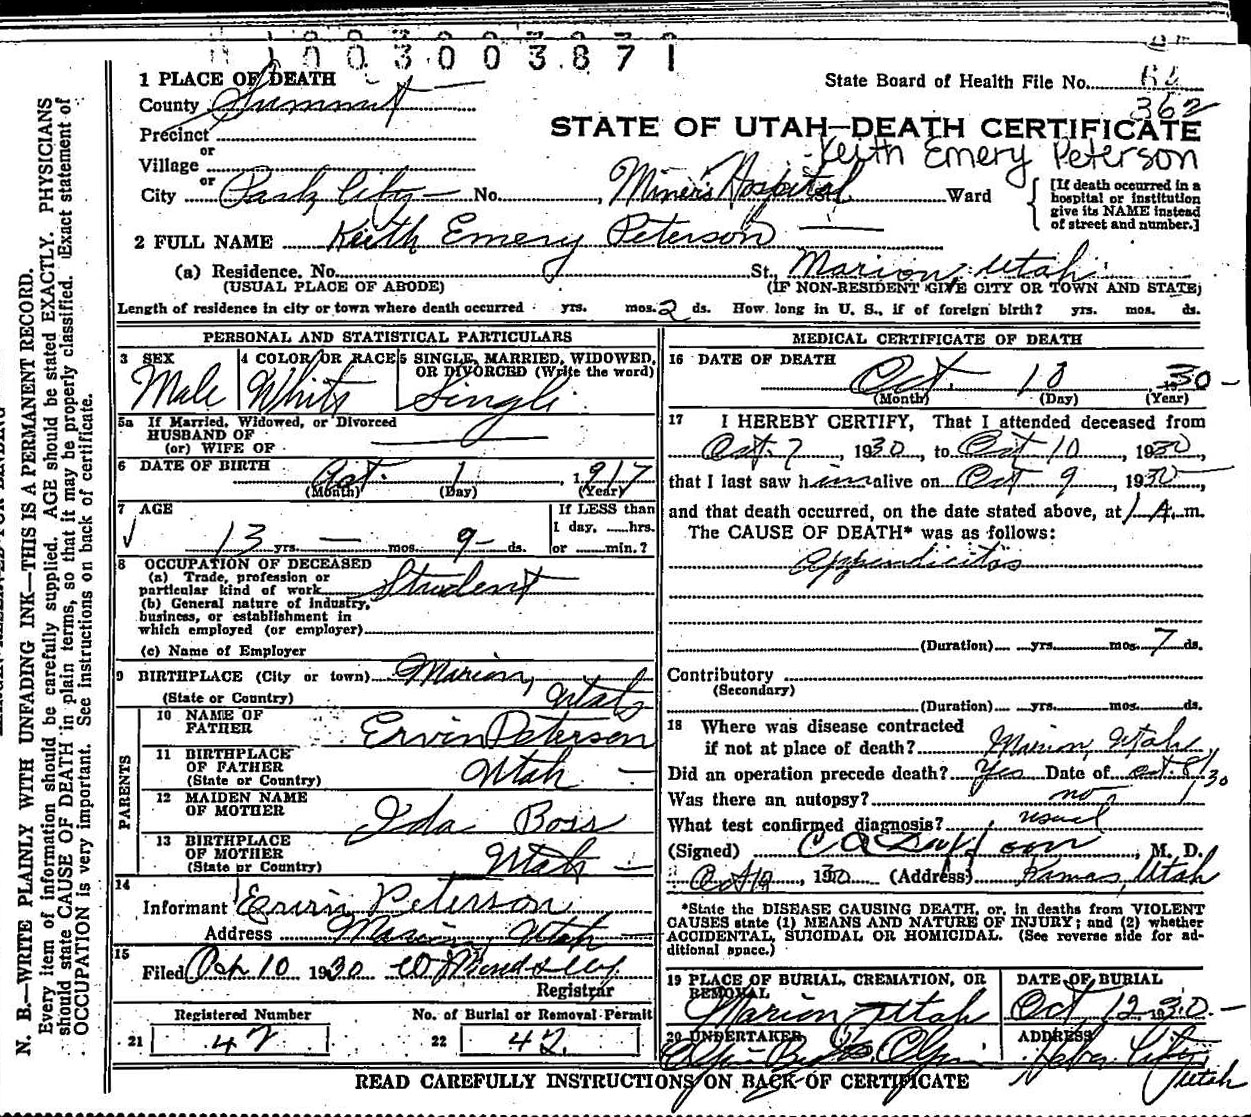 1003003871
1 PLACE OF DEATH
State Board of Health File No. 64
County Summit
362
Precinct
STATE OF UTAH—DEATH CERTIFICATE
or
Keith Emery Peterson
Village
or
City Park City No. , Miners Hospital St. Ward
[If death occurred in a
hospital or institution
give its NAME instead
of street and number.]
2 FULL NAME Keith Emery Peterson
(a) Residence. No. St., Marion, Utah
(USUAL PLACE OF ABODE) (IF NON-RESIDENT GIVE CITY OR TOWN AND STATE)
Length of residence in city or town where death occurred yrs. mos. 2 ds. How long in U. S., if of foreign birth? yrs. mos. ds.
PERSONAL AND STATISTICAL PARTICULARS
3 SEX
Male
4 COLOR OR RACE
White
5 SINGLE, MARRIED, WIDOWED,
OR DIVORCED (Write the word)
Single
5a If Married, Widowed, or Divorced
HUSBAND OF
(or) WIFE OF
6 DATE OF BIRTH
Oct. 1, 1917
(Month) (Day) (Year)
7 AGE
13 yrs. — mos. 9 ds.
If LESS than
1 day, ___hrs.
or ___min.?
8 OCCUPATION OF DECEASED
(a) Trade, profession or
particular kind of work Student
(b) General nature of industry,
business, or establishment in
which employed (or employer)
(c) Name of Employer
9 BIRTHPLACE (City or town) Marion,
(State or Country) Utah
PARENTS
10 NAME OF
FATHER Ervin Peterson
11 BIRTHPLACE
OF FATHER
(State or Country) Utah
12 MAIDEN NAME
OF MOTHER Ida Boss
13 BIRTHPLACE
OF MOTHER
(State or Country) Utah
14
Informant Ervin Peterson
Address Marion, Utah
15
Filed Oct 10 1930
Registrar
Registered Number No. of Burial or Removal Permit
21 42 22 42
MEDICAL CERTIFICATE OF DEATH
16 DATE OF DEATH
Oct. 10, 1930
(Month) (Day) (Year)
17 I HEREBY CERTIFY, That I attended deceased from
Oct. 7, 1930, to Oct 10, 1930,
that I last saw him alive on Oct 9, 1930,
and that death occurred, on the date stated above, at 1 A. m.
The CAUSE OF DEATH* was as follows:
Appendicitis
(Duration) yrs. mos. 7 ds.
Contributory
(Secondary)
(Duration) yrs. mos. ds.
18 Where was disease contracted
if not at place of death? Marion, Utah
Did an operation precede death? Yes Date of Oct. 8/30
Was there an autopsy? no
What test confirmed diagnosis? usual
(Signed) , M. D.
, 1930 (Address) Kamas, Utah
*State the DISEASE CAUSING DEATH, or, in deaths from VIOLENT
CAUSES state (1) MEANS AND NATURE OF INJURY; and (2) whether
ACCIDENTAL, SUICIDAL OR HOMICIDAL. (See reverse side for ad-
ditional space.)
19 PLACE OF BURIAL, CREMATION, OR
REMOVAL
Marion Utah
DATE OF BURIAL
Oct 12, 1930
20 UNDERTAKER
ADDRESS
Heber City,
Utah
READ CAREFULLY INSTRUCTIONS ON BACK OF CERTIFICATE
N. B.—WRITE PLAINLY WITH UNFADING INK—THIS IS A PERMANENT RECORD.
Every item of information should be carefully supplied. AGE should be stated EXACTLY. PHYSICIANS
should state CAUSE OF DEATH in plain terms, so that it may be properly classified. Exact statement of
OCCUPATION is very important. See instructions on back of certificate.